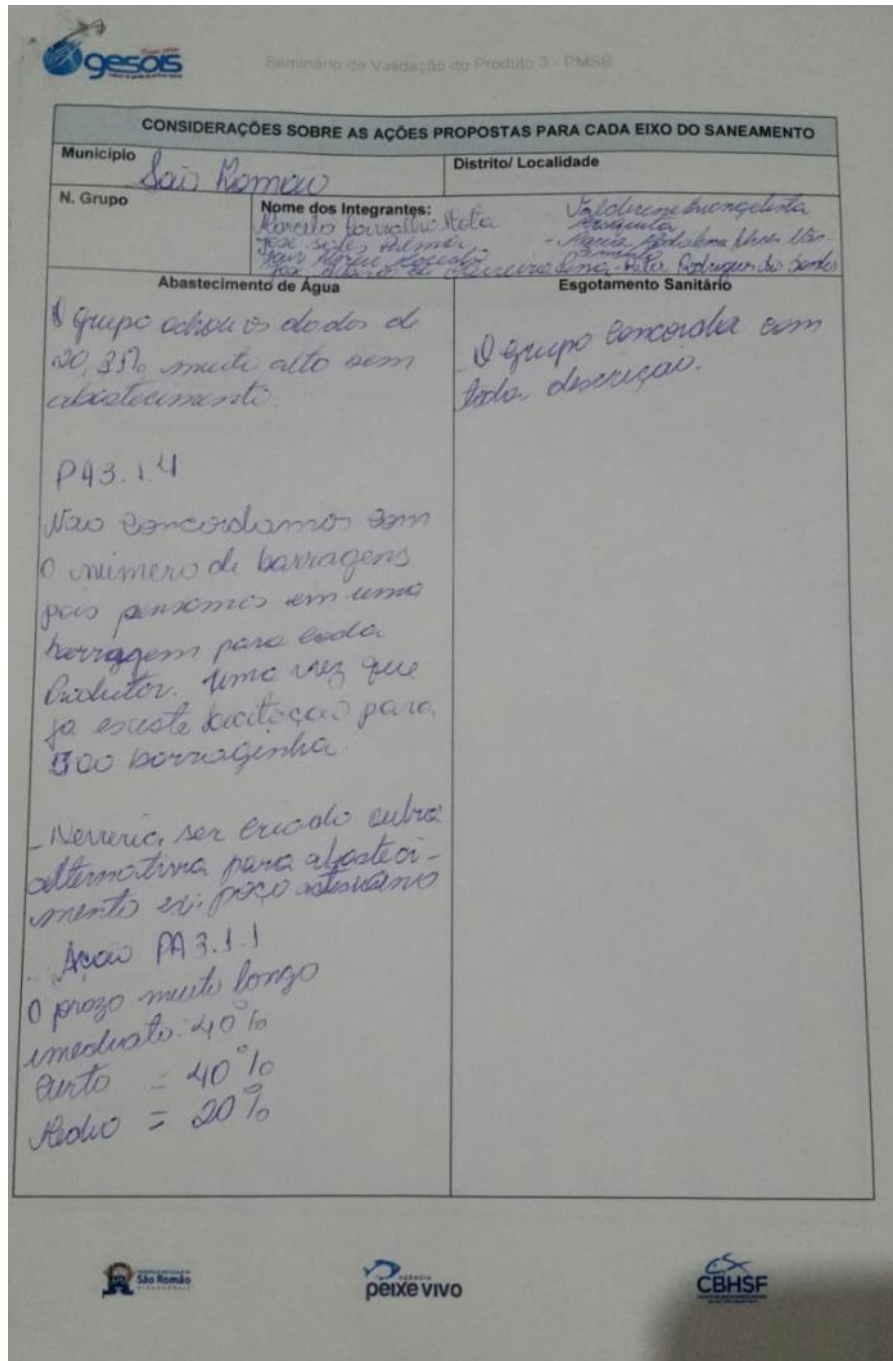 gesois
Seminário de Validação do Produto 3 - PMSB
CONSIDERAÇÕES SOBRE AS AÇÕES PROPOSTAS PARA CADA EIXO DO SANEAMENTO
Município
São Romão
Distrito/ Localidade
N. Grupo
Nome dos Integrantes:
Marcelo Carvalho Mota
José Sales
José
Valdirene Evangelista
Mesquita
- Maria Alves
Rodrigues dos Santos
Abastecimento de Água
O grupo achou os dados de
20,35% muito alto sem
abastecimento.
PA3.1.4
Não concordamos com
o número de barragens
pois pensamos em uma
barragem para cada
Produtor. Uma vez que
ja existe licitação para
300 barraginha.
- Deveria ser criado outra
alternativa para abasteci-
mento ex: poço artesiano
- Acão PA 3.1.1
O prazo muito longo
imediato: 40%
Curto = 40%
Medio = 20%
Esgotamento Sanitário
- O grupo concorda com
toda descrição.
São Romão
AGÊNCIA
peixe vivo
CBHSF